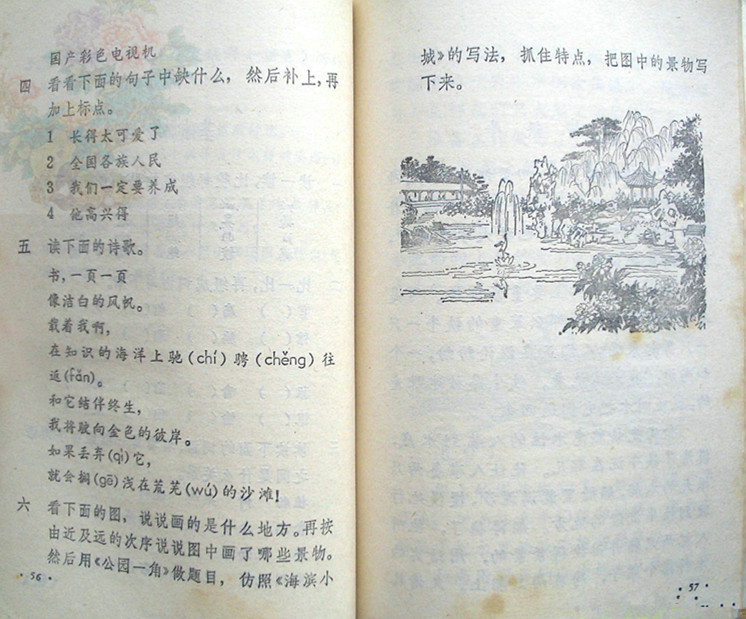 国产彩色电视机
四 看看下面的句子中缺什么，然后补上，再
加上标点。
1 长得太可爱了
2 全国各族人民
3 我们一定要养成
4 他高兴得
五 读下面的诗歌。
书，一页一页
像洁白的风帆。
载着我啊，
在知识的海洋上驰(chí)骋(chěng)往
返(fǎn)。
和它结伴终生，
我将驶向金色的彼岸。
如果丢弃(qì)它，
就会搁(gē)浅在荒芜(wú)的沙滩！
六 看下面的图，说说画的是什么地方。再按
由近及远的次序说说图中画了哪些景物。
然后用《公园一角》做题目，仿照《海滨小
56
城》的写法，抓住特点，把图中的景物写
下来。
57